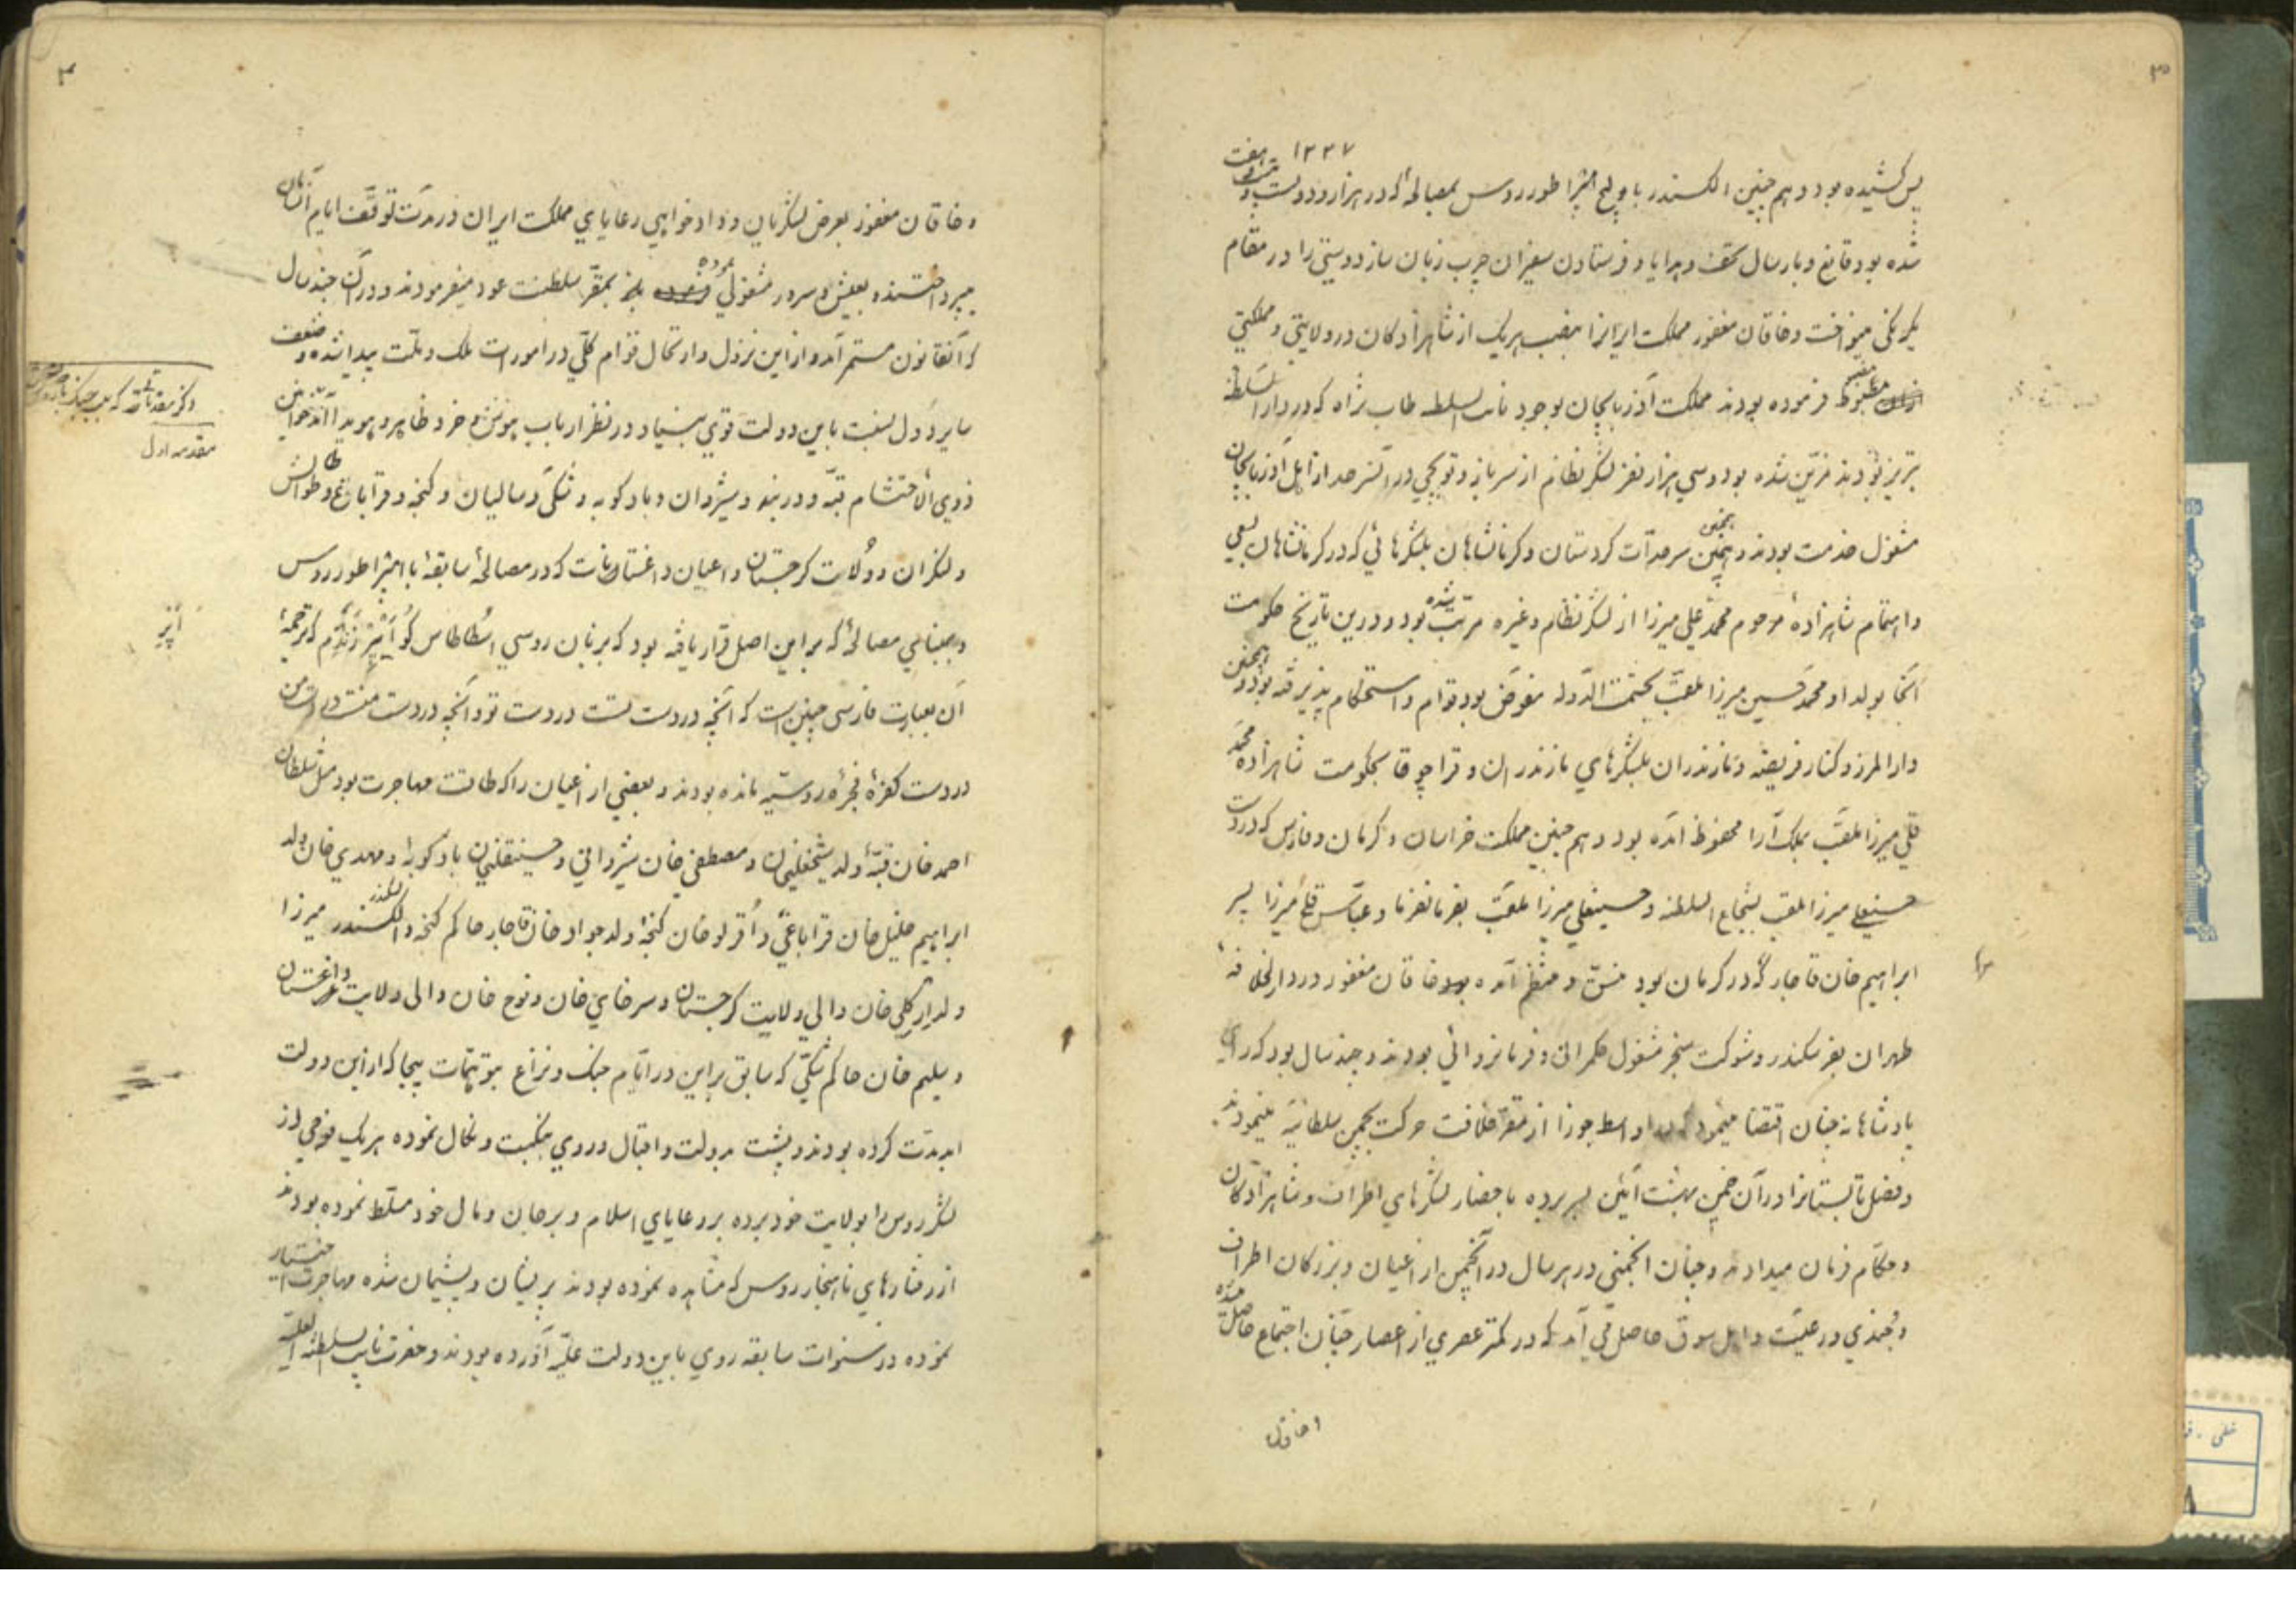 ۱۲۳۷
پس کشیده بود و هم چنین الکسندر پاولیچ امپراطور روس بمصالحۀ که در هزار و دویست و هفت
شده بود قانع و بارسال تحف و هدایا و فرستادن سفیران چرب زبان ساز دوستی را در مقام
یکرنکی مینواخت و خاقان مغفور مملکت ایرانرا بنصب هریک از شاهزادکان در ولایتی و مملکتی
مضبوط فرموده بودند مملکت آذربایجان بوجود نایب السلطنه طاب ثراه که در دار السلطنه
تبریز بودند مزین شده بود و سی هزار نفر لشکر نظام از سرباز و توپچی در آنسرحد از اهل آذربایجان
مشغول خدمت بودند و همچنین سرحدات کردستان و کرمانشاهان بلشکرهائی که در کرمانشاهان بسعی
و اهتمام شاهزادۀ مرحوم محمد علی میرزا از لشکر نظام و غیره مرتب شده بود و درین تاریخ حکومت
آنجا بولد او محمد حسین میرزا ملقب بحشمت الدوله مفوض بود قوام و استحکام پذیرفته بود و همچنین
دار المرز و کنار فریضه و مازندران بلشکرهای مازندران و قراچوقا بحکومت شاهزاده محمد
قلی میرزا ملقب بملک آرا محفوظ آمده بود و هم چنین مملکت خراسان و کرمان و فارس که در دست
حسنعلی میرزا ملقب بشجاع السلطنه و حسینعلی میرزا ملقب بفرمانفرما و عباس قلی میرزا پسر
ابراهیم خان قاجار که در کرمان بود منسق و منظم آمده بود خاقان مغفور در دار الخلافۀ
طهران بفر سکندر و شوکت سنجر مشغول حکمرانی و فرمانروائی بودند و چند سال بود که رای
پادشاهانه چنان اقتضا مینمود که در اواسط جوزا از مقر خلافت حرکت بچمن سلطانیه مینمودند
و فصل تابستانرا در آن چمن بهشت آئین بسر برده باحضار لشکرهای اطراف و شاهزادکان
و حکام فرمان میدادند و چنان انجمنی در هر سال در آنچمن از اعیان و بزرکان اطراف
و جندی و رعیت و اهل سوق حاصل می آمد که در کمتر عصری از اعصار چنان اجتماع حاصل شده
و خاقان مغفور بعرض لشکریان و دادخواهی رعایای مملکت ایران در مدت توقف ایام تابستان
میپرداختند و بعیش و سرور مشغولی نموده باز بمقر سلطنت عود میفرمودند و در آن چند سال
که آنقانون مستمر آمد و از این نزول و ارتحال قوام کلی در امورات ملک و ملت پیدا شده و ضعف
سایر دول نسبت باین دولت قوی بنیاد در نظر ارباب هوش و خرد ظاهر و هویدا آمد خوانین
ذوی الاحتشام قبه و دربند و شیروان و بادکوبه و شکی و سالیان و کنجه و قراباغ و طوالش
و لنکران و ولات کرجستان و اعیان داغستانات که در مصالحۀ سابقه با امپراطور روس
و مبنای مصالحۀ که بر این اصل قرار یافته بود که بزبان روسی اسطاطاس کو اپرزندم که ترجمۀ
آن بعبارت فارسی چنین است که آنچه در دست تست در دست تو و آنچه در دست منست در دست من
در دست کفرۀ فجرۀ روسیه مانده بودند و بعضی از اعیان را که طاقت مهاجرت بود مثل سلطان
احمد خان قبۀ ولد شیخعلیخان و مصطفی خان شیروانی و حسینقلیخان بادکوبۀ و مهدی خان ولد
ابراهیم خلیل خان قراباغی و اقرلو خان کنجۀ ولد جواد خان قاجار حاکم کنجه و الکسندر میرزا
ولد ارکلی خان والی ولایت کرجستان و سرخای خان و نوح خان والی ولایت داغستان
و سلیم خان حاکم شکی که سابق بر این در ایام جنک و نزاع بتوهمات بیجا که از این دولت
ابد مدت کرده بودند و پشت بدولت و اقبال و روی بنکبت و نکال نموده هریک فوجی از
لشکر روس را بولایت خود برده بر رعایای اسلام و بر جان و مال خود مسلط نموده بودند
از رفتارهای ناهنجار روس که مشاهده نموده بودند پریشان و پشیمان شده مهاجرت اختیار
نموده در سنوات سابقه روی باین دولت علیه آورده بودند و حضرت نایب السلطنه العلیه
مقدمه اول